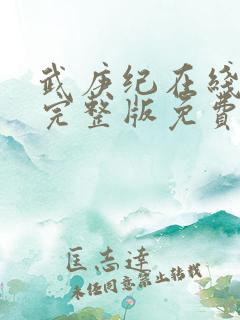 武庚纪在线
完整版免费
匡志達
未任同意禁止转载